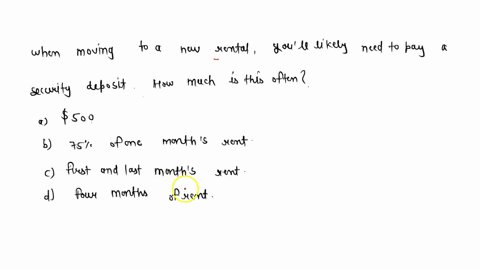 when moving to a new rental, you'll likely need to pay a
security deposit. How much is this often?
a) $500
b) 75% of one month's rent
c) first and last month's rent
d) four months of rent.